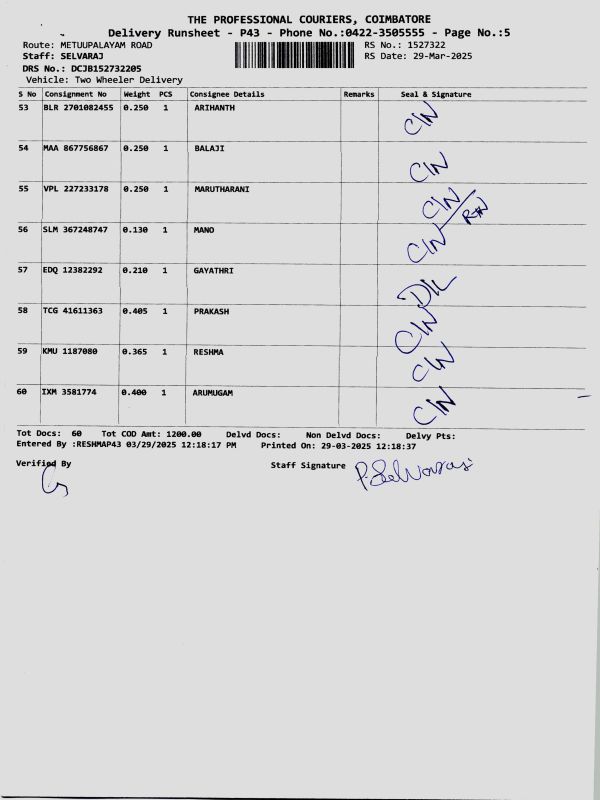 THE PROFESSIONAL COURIERS, COIMBATORE
Delivery Runsheet - P43 - Phone No.:0422-3505555 - Page No.:5
Route: METUUPALAYAM ROAD RS No.: 1527322
Staff: SELVARAJ RS Date: 29-Mar-2025
DRS No.: DCJB152732205
Vehicle: Two Wheeler Delivery
S No Consignment No Weight PCS Consignee Details Remarks Seal & Signature
53 BLR 2701082455 0.250 1 ARIHANTH C/N
54 MAA 867756867 0.250 1 BALAJI C/N
55 VPL 227233178 0.250 1 MARUTHARANI C/N
56 SLM 367248747 0.130 1 MANO C/N
57 EDQ 12382292 0.210 1 GAYATHRI D/L
58 TCG 41611363 0.405 1 PRAKASH C/N
59 KMU 1187080 0.365 1 RESHMA C/N
60 IXM 3581774 0.400 1 ARUMUGAM C/N
Tot Docs: 60 Tot COD Amt: 1200.00 Delvd Docs: Non Delvd Docs: Delvy Pts:
Entered By :RESHMAP43 03/29/2025 12:18:17 PM Printed On: 29-03-2025 12:18:37
Verified By Staff Signature P. Selvaraj